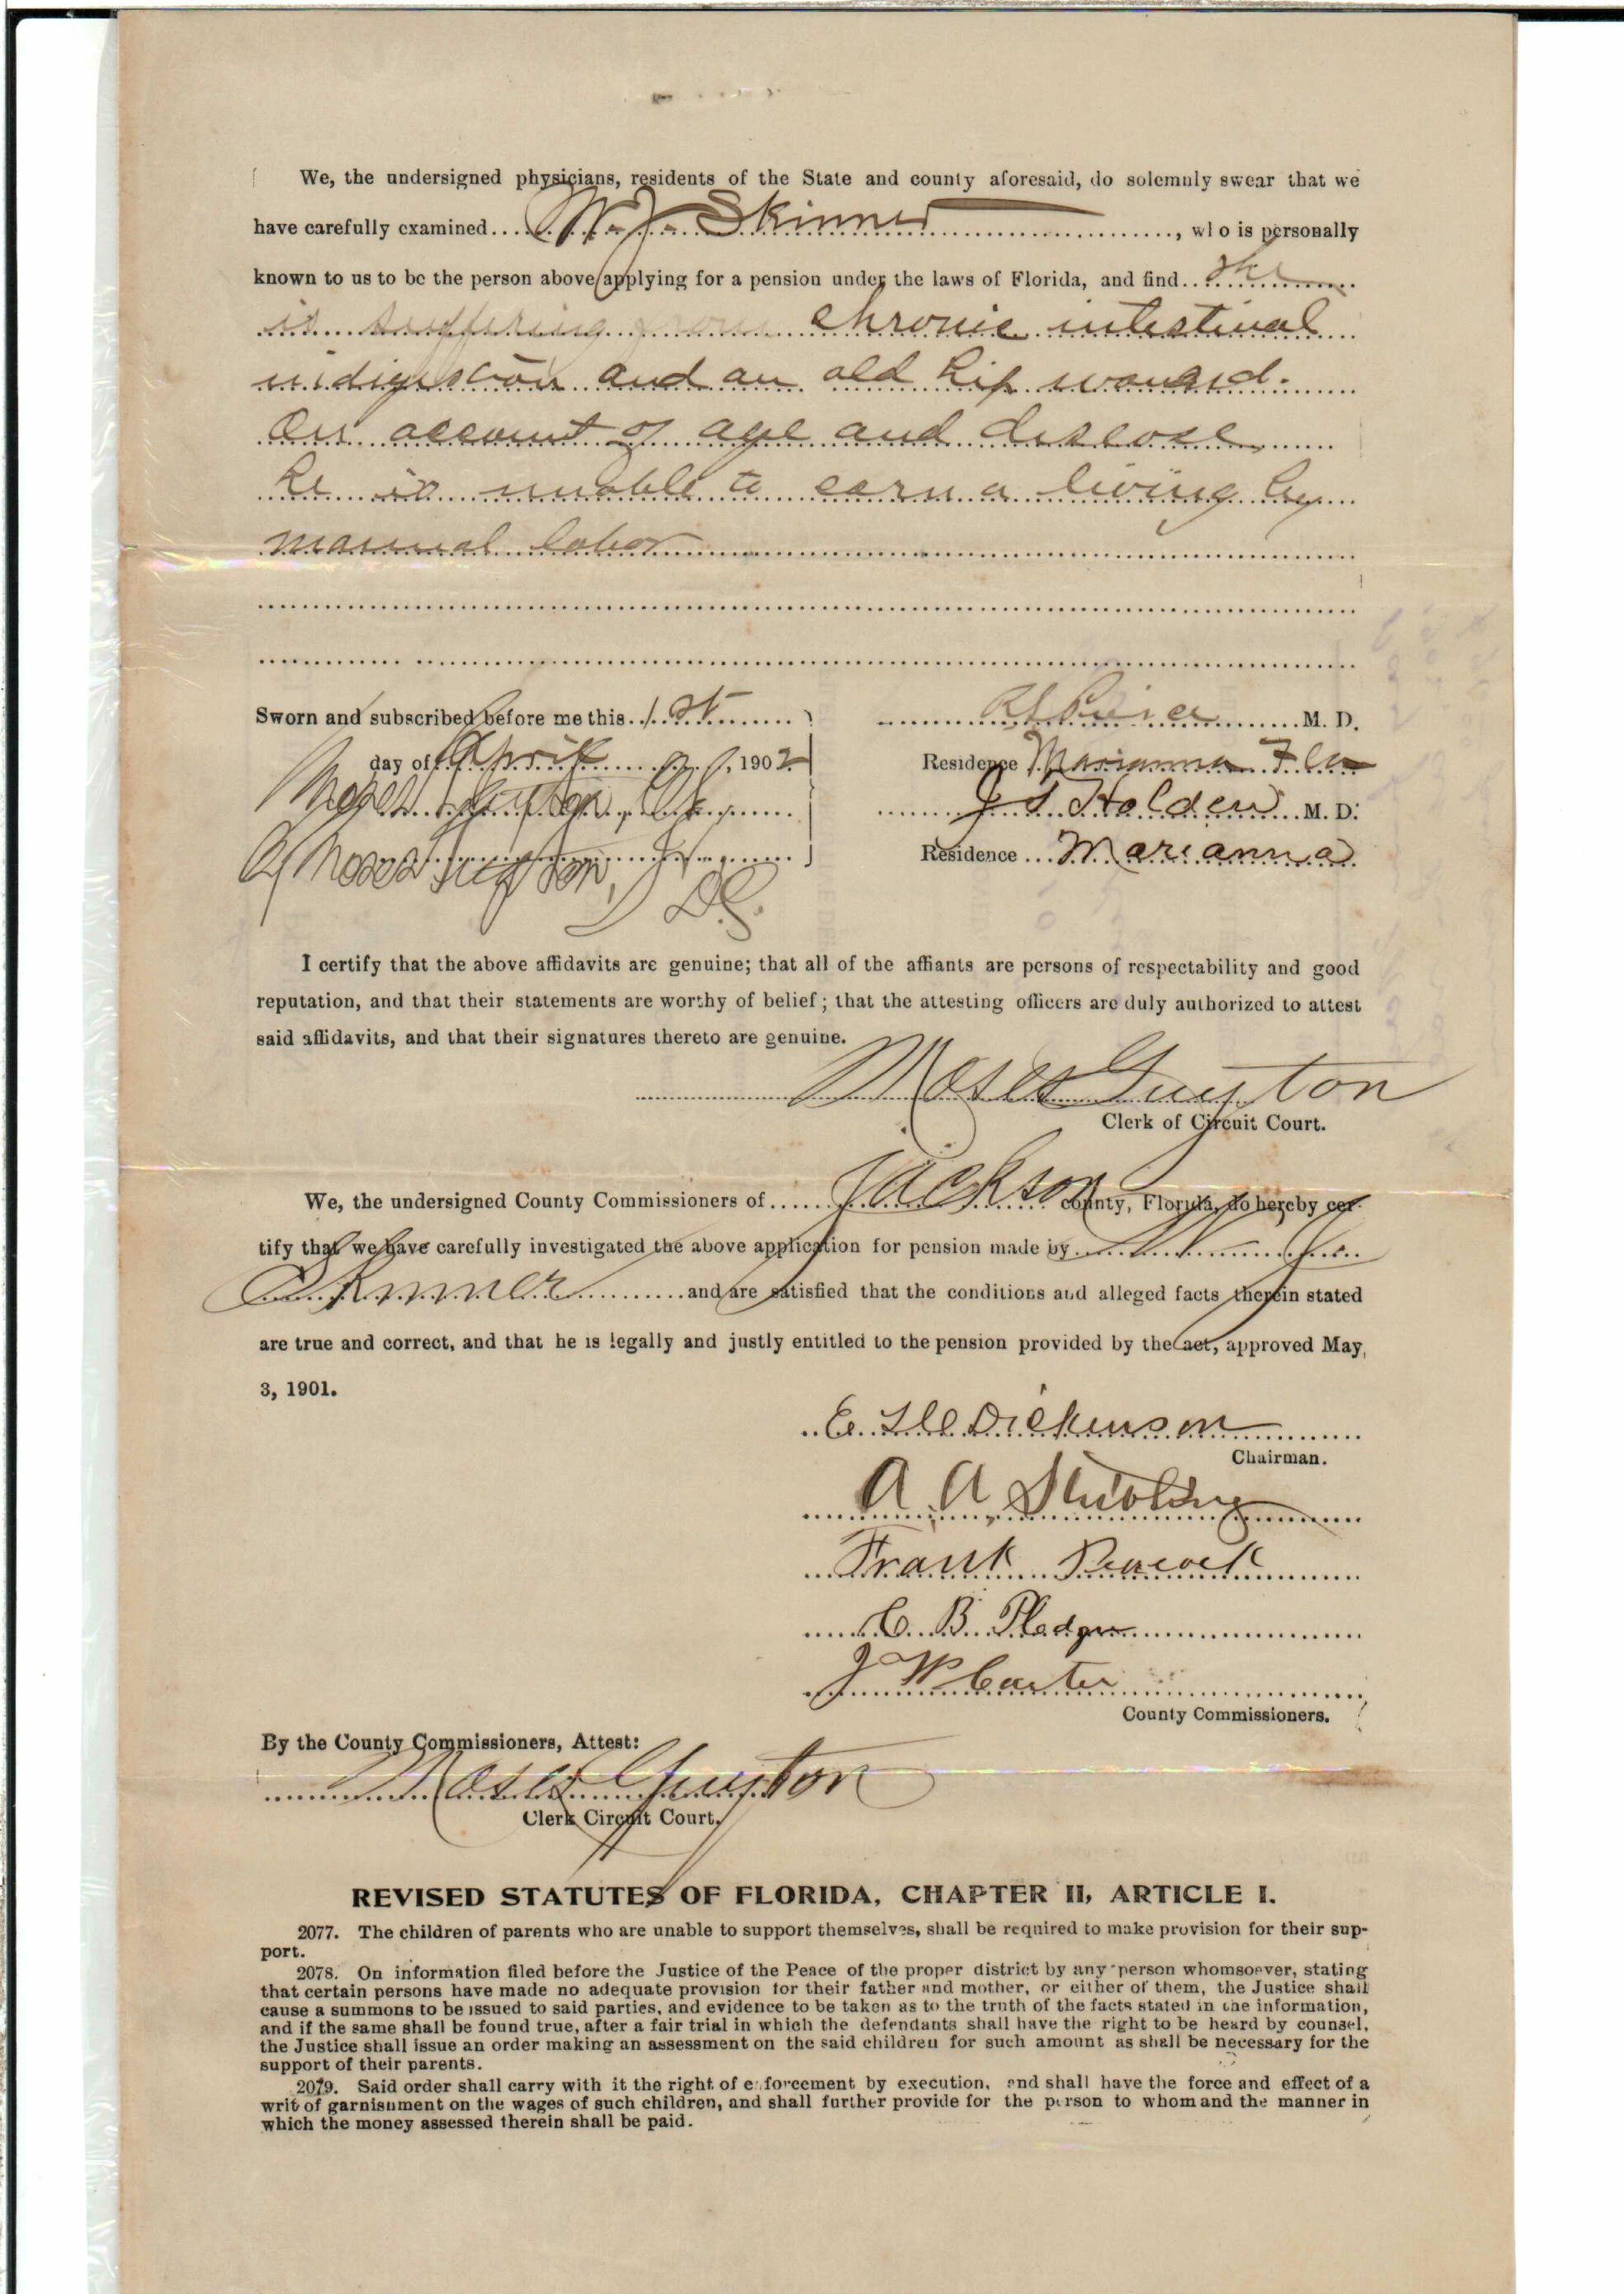 We, the undersigned physicians, residents of the State and county aforesaid, do solemnly swear that we
have carefully examined W. J. Skinner, who is personally
known to us to be the person above applying for a pension under the laws of Florida, and find he
is suffering from chronic intestinal
indigestion and an old hip wound.
On account of age and disease
he is unable to earn a living by
manual labor
Sworn and subscribed before me this 1st
M. D.
day of April, 1902
Residence Marianna Fla
Moses Guyton, Clk
J S Holden M. D.
Residence Marianna
Moses Guyton, Jr
D.C.
I certify that the above affidavits are genuine; that all of the affiants are persons of respectability and good
reputation, and that their statements are worthy of belief; that the attesting officers are duly authorized to attest
said affidavits, and that their signatures thereto are genuine.
Moses Guyton
Clerk of Circuit Court.
We, the undersigned County Commissioners of Jackson county, Florida, do hereby cer-
tify that we have carefully investigated the above application for pension made by W. J.
Skinner and are satisfied that the conditions and alleged facts therein stated
are true and correct, and that he is legally and justly entitled to the pension provided by the act, approved May
3, 1901.
Dickenson
Chairman.
A A Stribling
Frank Peacock
C. B. Pledger
J W Carter
County Commissioners.
By the County Commissioners, Attest:
Moses Guyton
Clerk Circuit Court.
REVISED STATUTES OF FLORIDA, CHAPTER II, ARTICLE I.
2077. The children of parents who are unable to support themselves, shall be required to make provision for their sup-
port.
2078. On information filed before the Justice of the Peace of the proper district by any person whomsoever, stating
that certain persons have made no adequate provision for their father and mother, or either of them, the Justice shall
cause a summons to be issued to said parties, and evidence to be taken as to the truth of the facts stated in the information,
and if the same shall be found true, after a fair trial in which the defendants shall have the right to be heard by counsel,
the Justice shall issue an order making an assessment on the said children for such amount as shall be necessary for the
support of their parents.
2079. Said order shall carry with it the right of enforcement by execution, and shall have the force and effect of a
writ of garnishment on the wages of such children, and shall further provide for the person to whom and the manner in
which the money assessed therein shall be paid.